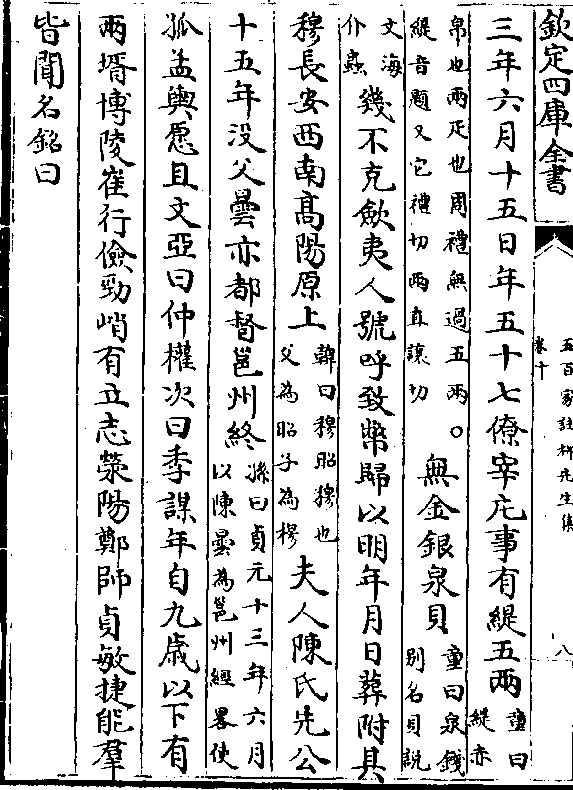 欽定四庫全書
五百家註柳先生集
卷十
八
三年六月十五日年五十七僚宰庀事有緹五兩童曰緹亦
帛也兩疋也周禮無過五兩○緹音題又它禮切兩直讓切無金銀泉貝童曰泉錢別名貝說
文海介蟲幾不克歛夷人號呼致幣歸以明年月日葬附其
穆長安西南髙陽原上韓曰穆昭穆也父為昭子為穆夫人陳氏先公
十五年没父曇亦都督邕州終孫曰貞元十三年六月以陳曇為邕州經畧使
孤孟輿愿且文亞曰仲權次曰季謀年自九歲以下有
兩壻博陵崔行儉勁峭有立志滎陽鄭師貞敏捷能羣
皆聞名銘曰